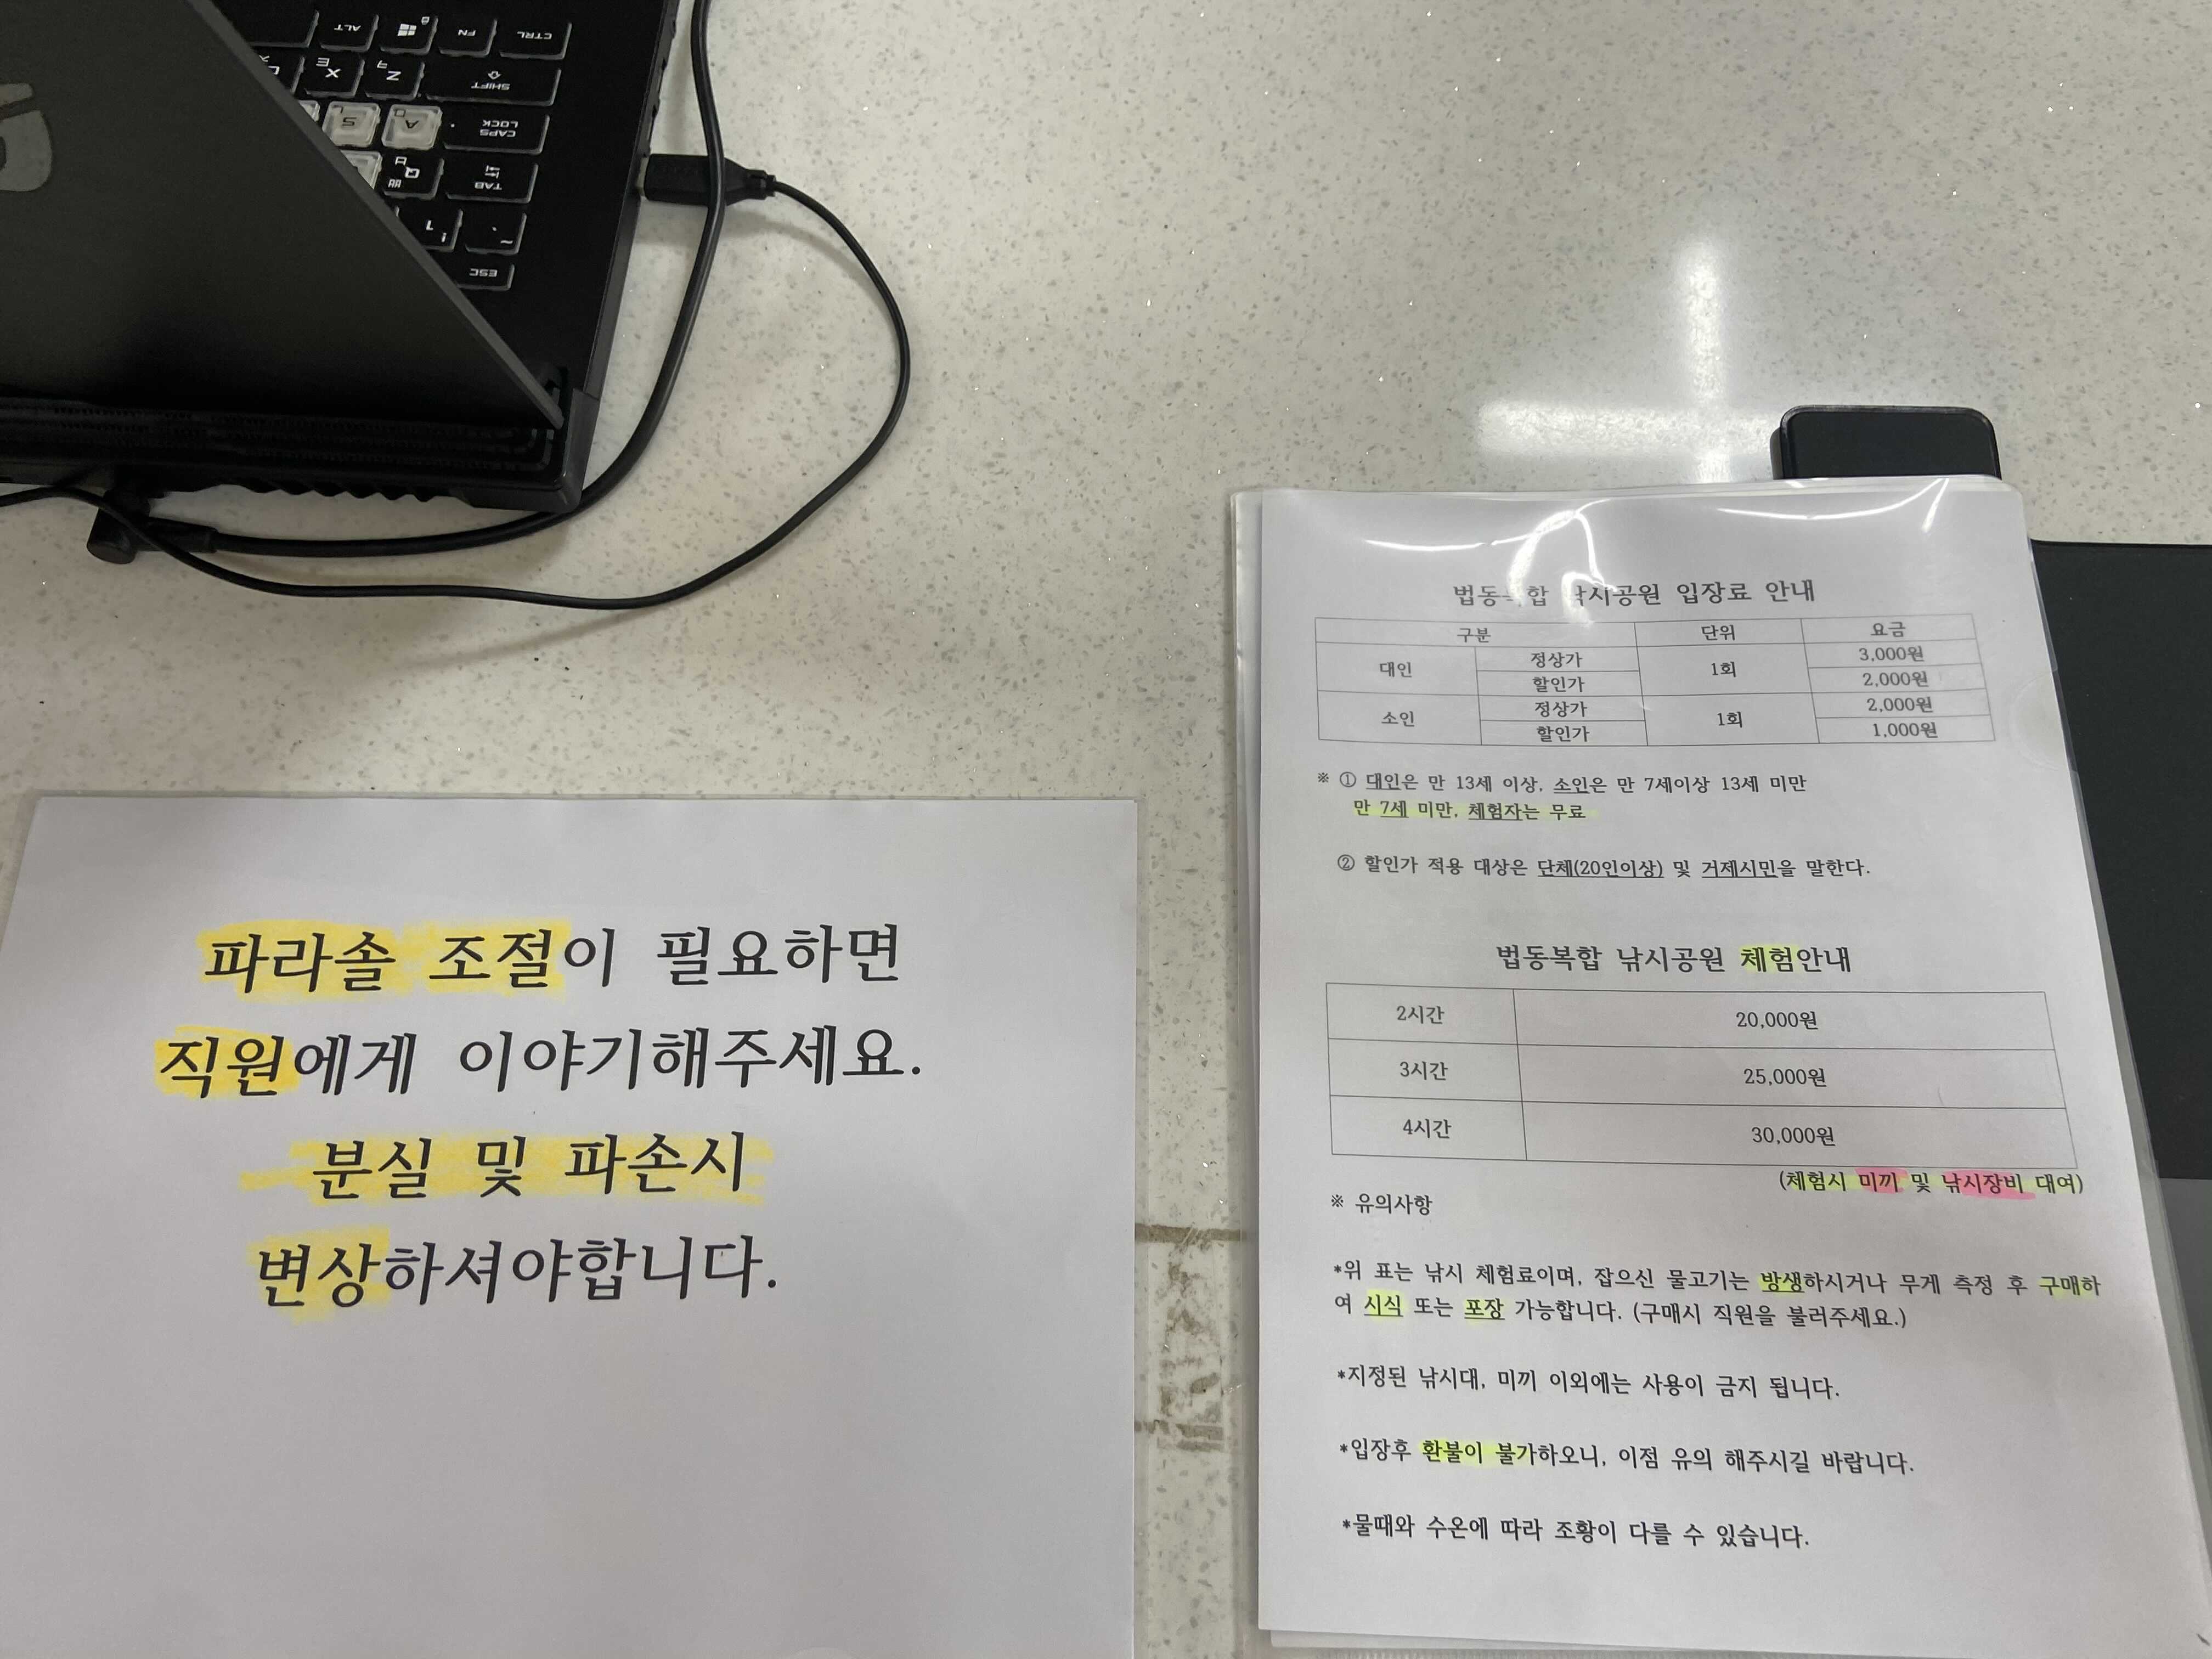 CTRL
FN
ALT
SHIFT
Z
ㅋ
X
ㅌ
CAPS
LOCK
A
S
TAB
Q
ㅂ
1
!
~
ESC
파라솔 조절이 필요하면
직원에게 이야기해주세요.
분실 및 파손시
변상하셔야합니다.
법동복합 낚시공원 입장료 안내
구분 단위 요금
대인 정상가 1회 3,000원
할인가 2,000원
소인 정상가 1회 2,000원
할인가 1,000원
※ ① 대인은 만 13세 이상, 소인은 만 7세이상 13세 미만
만 7세 미만, 체험자는 무료
② 할인가 적용 대상은 단체(20인이상) 및 거제시민을 말한다.
법동복합 낚시공원 체험안내
2시간 20,000원
3시간 25,000원
4시간 30,000원
(체험시 미끼 및 낚시장비 대여)
※ 유의사항
*위 표는 낚시 체험료이며, 잡으신 물고기는 방생하시거나 무게 측정 후 구매하
여 시식 또는 포장 가능합니다. (구매시 직원을 불러주세요.)
*지정된 낚시대, 미끼 이외에는 사용이 금지 됩니다.
*입장후 환불이 불가하오니, 이점 유의 해주시길 바랍니다.
*물때와 수온에 따라 조황이 다를 수 있습니다.